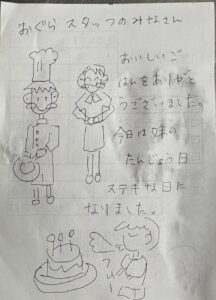 おぐら スタッフのみなさん
おいしいご
はんをありがと
うございました。
今日は妹の
たんじょう日
ステキな日に
なりました。
フゥー